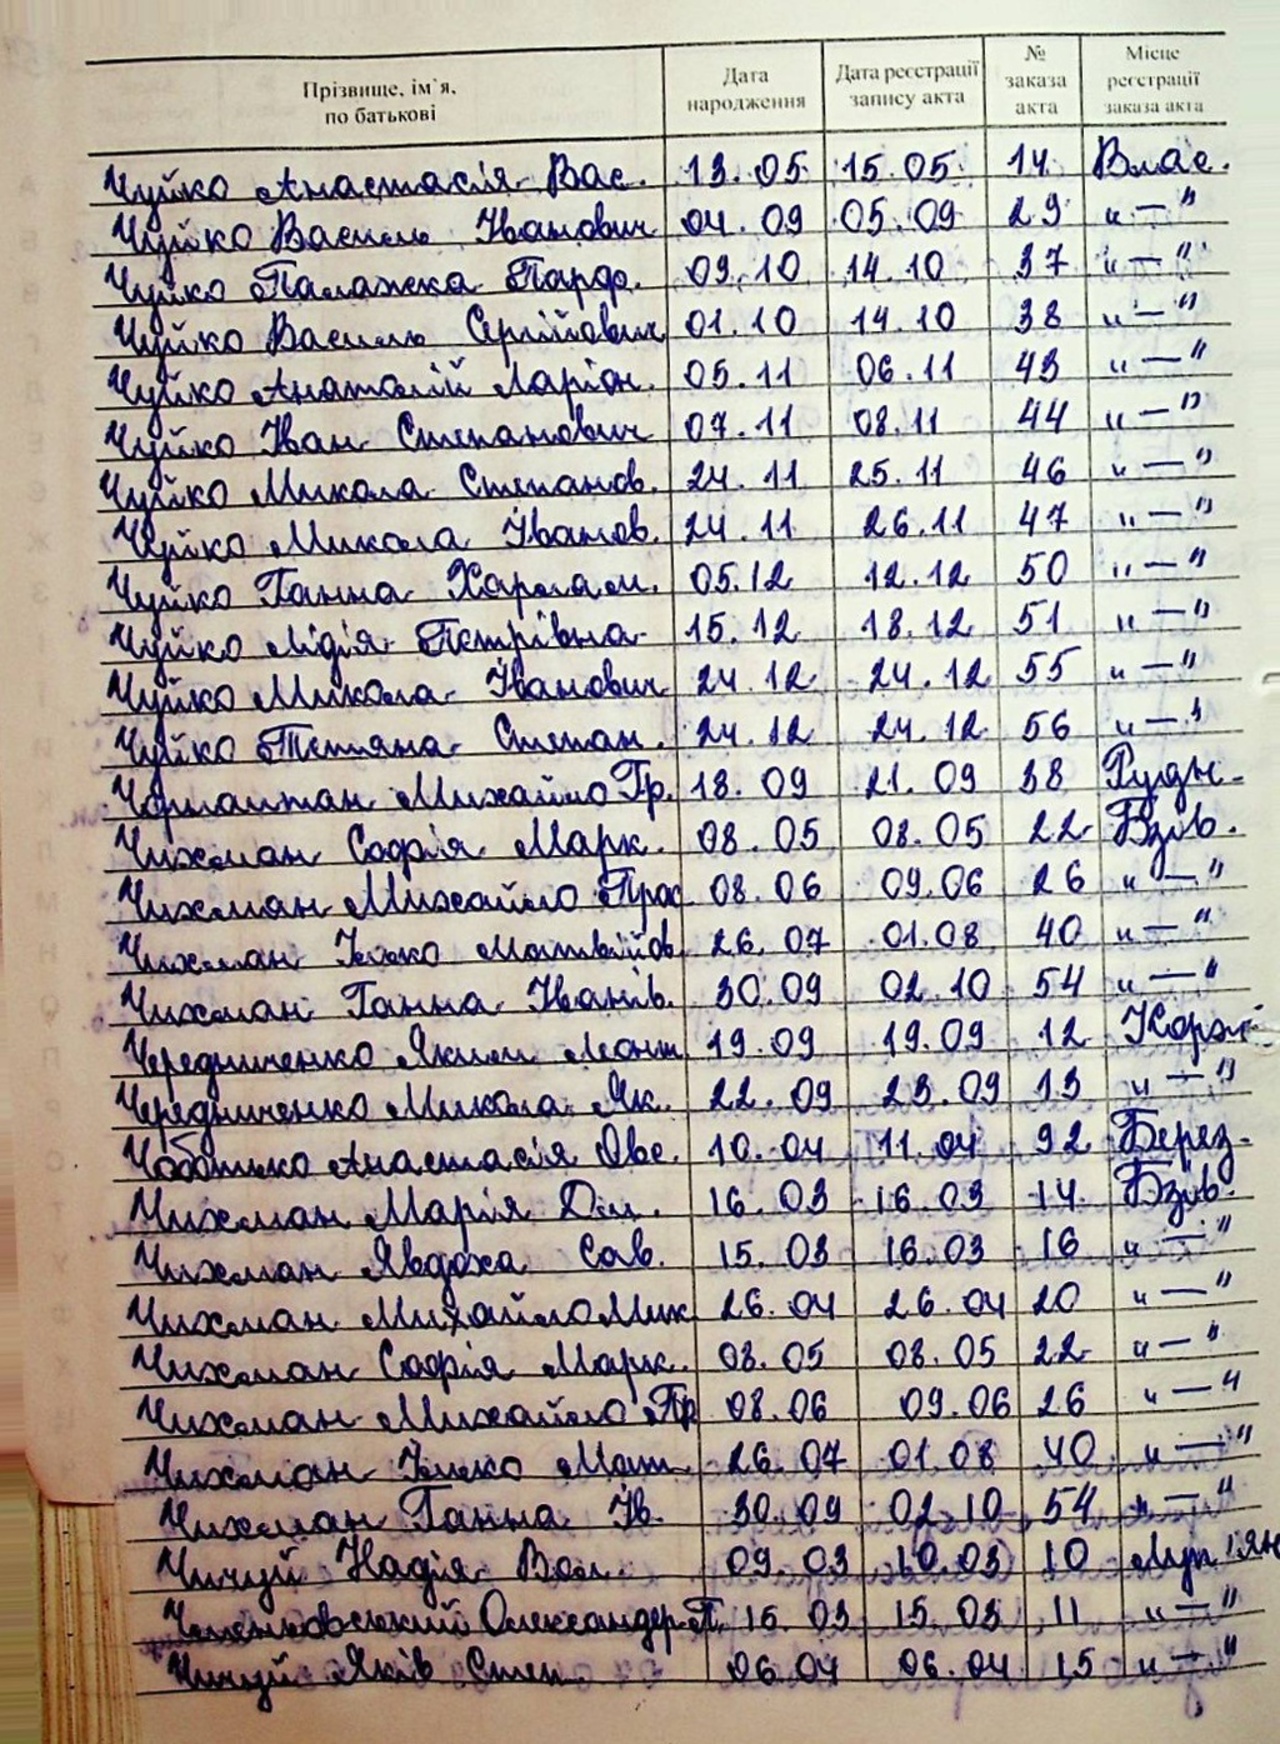 Прізвище, ім`я, по батькові Дата народження Дата реєстрації запису акта № заказа акта Місце реєстрації заказа акта
Чуйко Анастасія Вас. 13.05 15.05 14 Влас.
Чуйко Василь Іванович 04.09 05.09 29 "—"
Чуйко Палажка Парф. 09.10 14.10 37 "—"
Чуйко Василь Сергійович 01.10 14.10 38 "—"
Чуйко Анатолій Ларіон. 05.11 06.11 43 "—"
Чуйко Іван Степанович 07.11 08.11 44 "—"
Чуйко Микола Степанов. 24.11 25.11 46 "—"
Чуйко Микола Іванов. 24.11 26.11 47 "—"
Чуйко Ганна Харлам. 05.12 12.12 50 "—"
Чуйко Лідія Петрівна 15.12 18.12 51 "—"
Чуйко Микола Іванович 24.12 24.12 55 "—"
Чуйко Тетяна Степан. 24.12 24.12 56 "—"
Михайло Гр. 18.09 21.09 38 Рудн.
Чихман Софія Марк. 08.05 08.05 22 Бзів.
Чихман Михайло 08.06 09.06 26 "—"
Чихман Ілько Матвійов. 26.07 01.08 40 "—"
Чихман Ганна Іванів. 30.09 02.10 54 "—"
Чередниченко Яким Леонт 19.09 19.09 12 Корж
Чередниченко Микола Як. 22.09 23.09 13 "—"
Чоботько Анастасія Овс. 10.04 11.04 92 Берез.
Чихман Марія Дм. 16.03 16.03 14 Бзів.
Чихман Явдоха Сав. 15.03 16.03 16 "—"
Чихман Михайло Мик 26.04 26.04 20 "—"
Чихман Софія Марк. 08.05 08.05 22 "—"
Чихман Михайло Пр 08.06 09.06 26 "—"
Чихман Ілько Мат. 26.07 01.08 40 "—"
Чихман Ганна Ів. 30.09 02.10 54 "—"
Чичуй Надія Вол. 09.03 10.03 10 Луп'ян
Олександер П. 15.03 15.03 11 "—"
Чичуй Яків Степ. 06.04 06.04 15 "—"